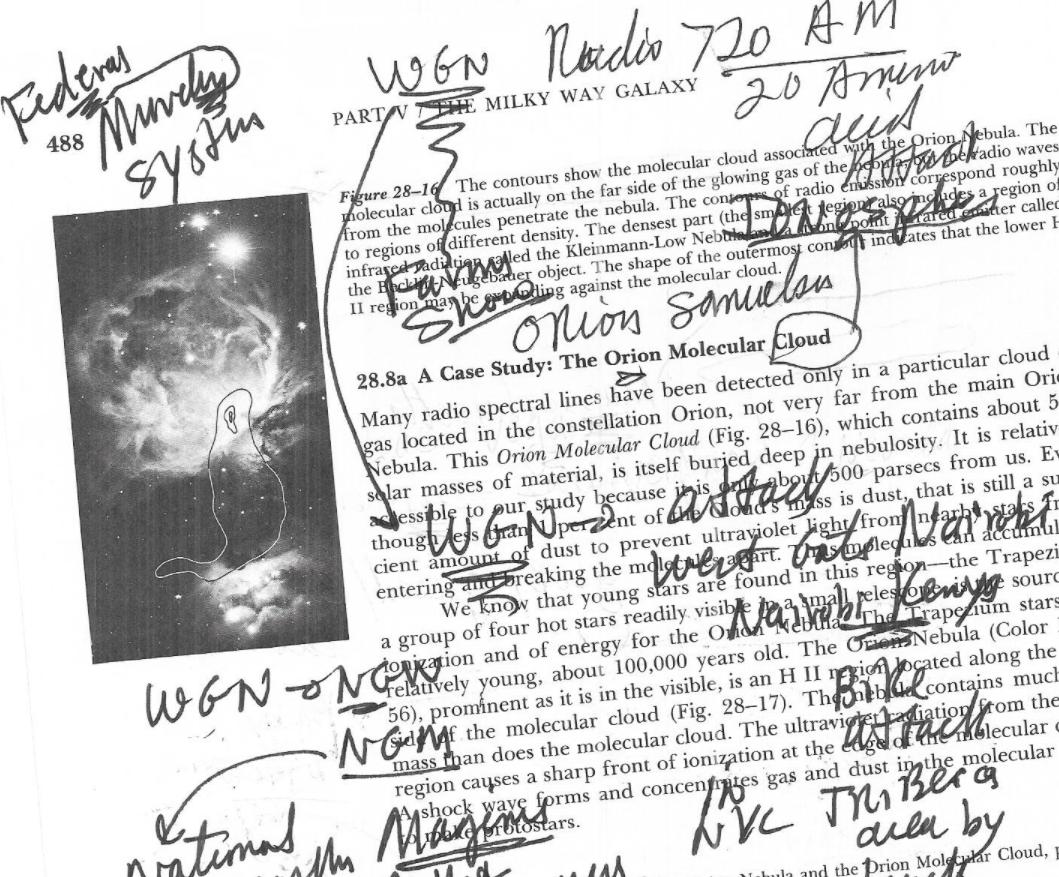 WGN Radio 720 AM
20 Amino
acid
Attack
Federal
system
488
PART V / THE MILKY WAY GALAXY
Figure 28–16 The contours show the molecular cloud associated with the Orion Nebula. The
molecular cloud is actually on the far side of the glowing gas of the nebula, but the radio waves
from the molecules penetrate the nebula. The contours of radio emission correspond roughly
to regions of different density. The densest part (the smallest region) also includes a region of
infrared radiation called the Kleinmann-Low Nebula and a strong point infrared emitter called
the Becklin-Neugebauer object. The shape of the outermost contour indicates that the lower H
II region may be expanding against the molecular cloud.
Farms
Show
Orion Samuelson
28.8a A Case Study: The Orion Molecular Cloud
Many radio spectral lines have been detected only in a particular cloud
gas located in the constellation Orion, not very far from the main Orio
Nebula. This Orion Molecular Cloud (Fig. 28–16), which contains about 5
solar masses of material, is itself buried deep in nebulosity. It is relative
accessible to our study because it is only about 500 parsecs from us. Ev
though less than 1 percent of the cloud's mass is dust, that is still a su
cient amount of dust to prevent ultraviolet light from nearby stars from
entering and breaking the molecules apart. Thus molecules can accumul
We know that young stars are found in this region—the Trapezi
a group of four hot stars readily visible in a small telescope is the sourc
ionization and of energy for the Orion Nebula. The Trapezium stars
relatively young, about 100,000 years old. The Orion Nebula (Color
56), prominent as it is in the visible, is an H II region located along the
side of the molecular cloud (Fig. 28–17). The nebula contains much
mass than does the molecular cloud. The ultraviolet radiation from the
region causes a sharp front of ionization at the edge of the molecular c
A shock wave forms and concentrates gas and dust in the molecular
to make protostars.
WGN attack
West Gate Nairobi
Nairobi Kenya
Bike
attack
in
NYC TRiBeca
area by
WGN NGW
NGM
National
Nebula and the Orion Molecular Cloud, p